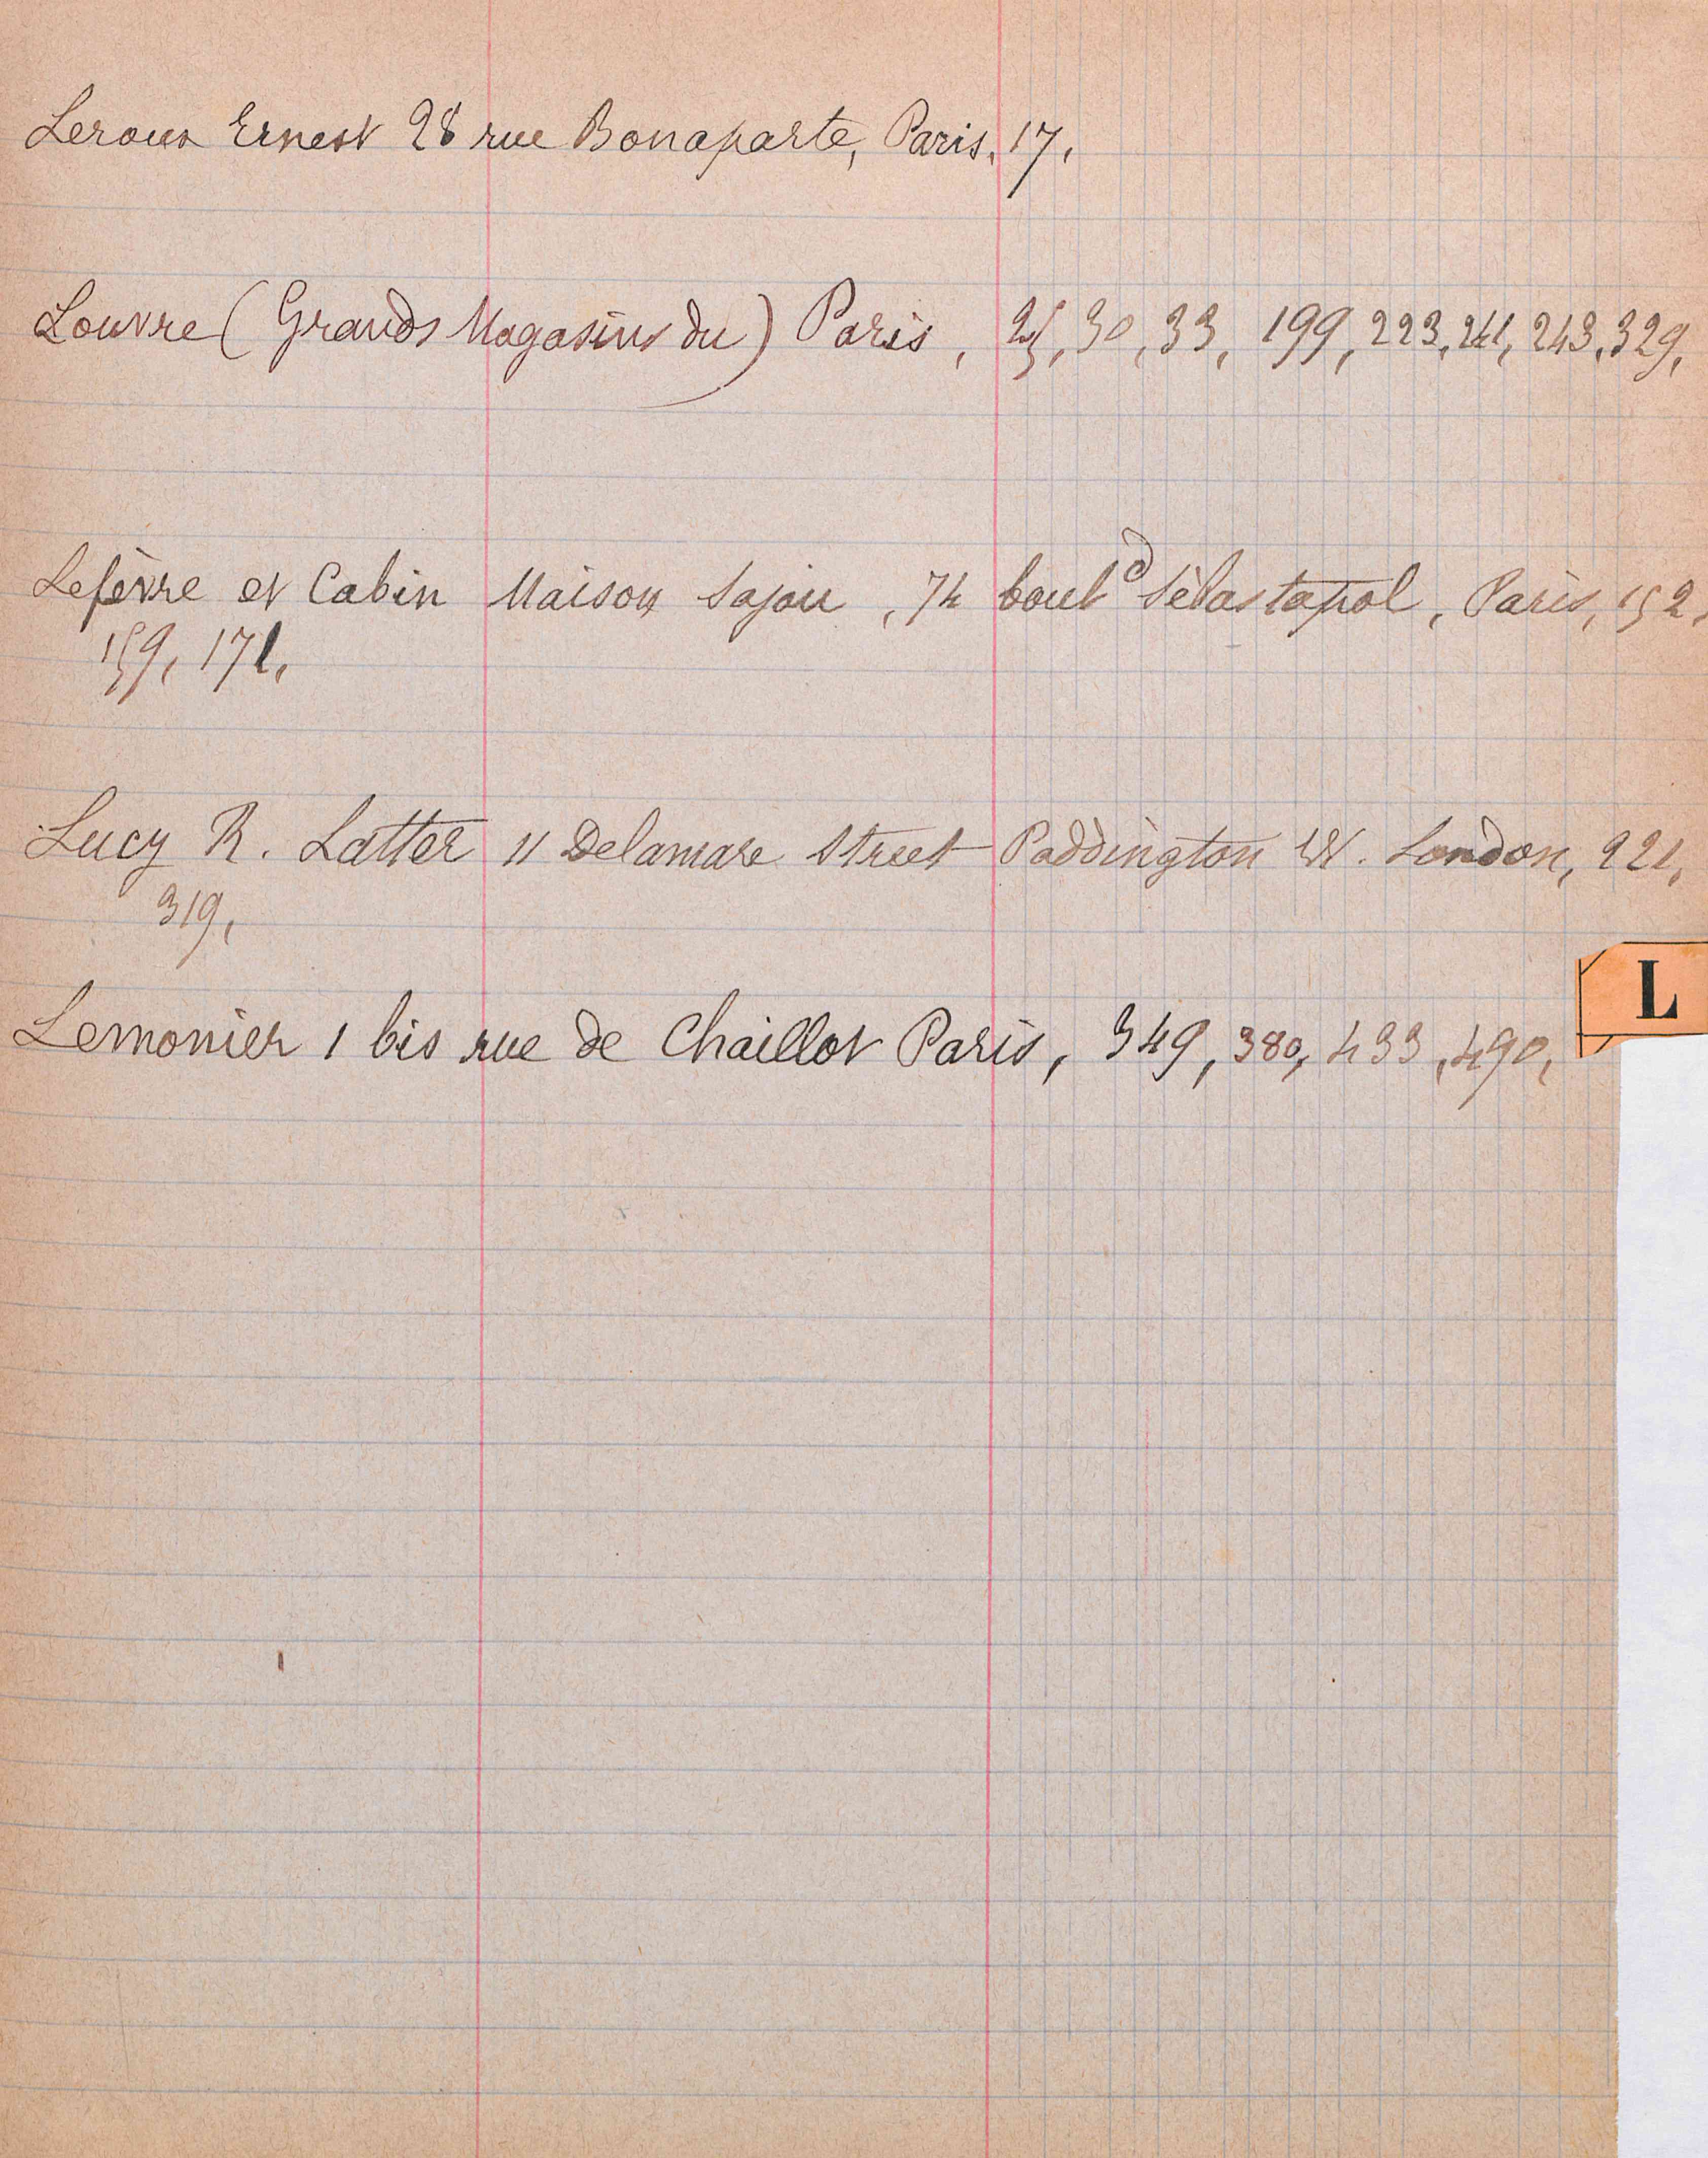 Leroux Ernest 28 rue Bonaparte, Paris, 17,
Louvre (Grands Magasins du) Paris, 25, 30, 33, 199, 223, 241, 243, 329,
Lefèvre et Cabin Maison Sajou, 74 boul^d Sébastapol, Paris, 152,
159, 171,
Lucy R. Latter 11 Delamare Street Paddington W. London, 221,
319,
L
Lemonier 1 bis rue de Chaillot Paris, 349, 380, 433, 490,